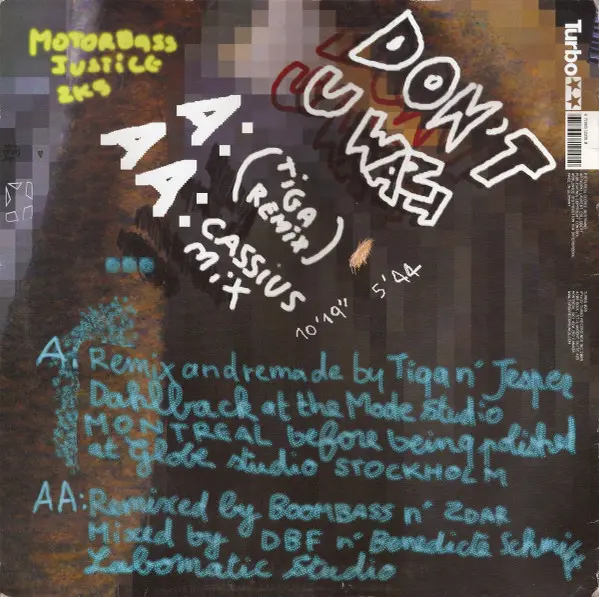 MOTORBASS
JUSTICE
2K5
DON'T
U WAN
Turbo
A. (TIGA
REMIX)
AA. CASSIUS
MIX
10'19"
5'44
A: Remix and remade by Tiga n' Jesper
Dahlback at the Mode Studio
MONTREAL before being polished
at Globe studio STOCKHOLM
AA: Remixed by BOOMBASS n' ZDAR
Mixed by DBF n' Benedicte Schmitt
Labomatic Studio